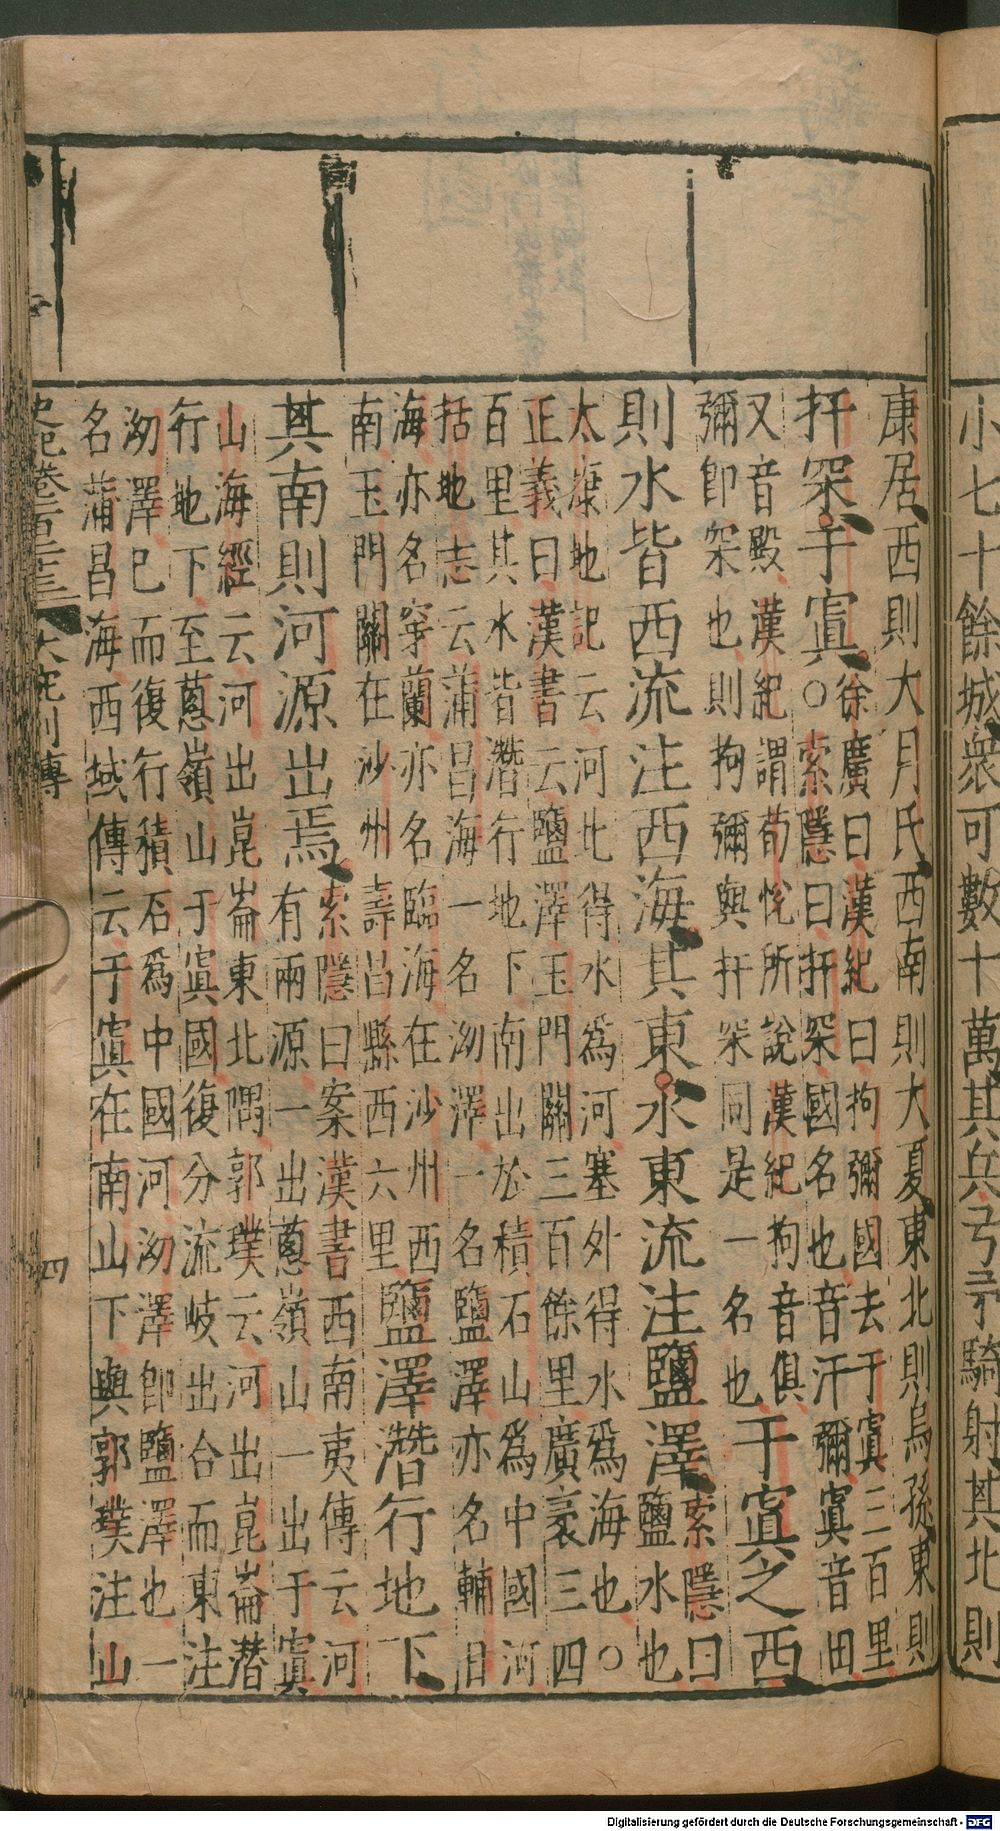 小七十餘城衆可數十萬其兵弓矛騎射其北則
康居西則大月氏西南則大夏東北則烏孫東則
扜罙于窴
徐廣曰漢紀曰拘彌國去于窴三百里
○索隱曰扜罙國名也音汗彌窴音田
又音殿漢紀謂荀悅所說漢紀拘音俱
彌卽罙也則拘彌與扜罙同是一名也
于窴之西
則水皆西流注西海其東水東流注鹽澤
索隱曰
鹽水也
太康地記云河北得水爲河塞外得水爲海也○
正義曰漢書云鹽澤玉門關三百餘里廣袤三四
百里其水皆潛行地下南出於積石山爲中國河
括地志云蒲昌海一名泑澤一名鹽澤亦名輔日
海亦名穿蘭亦名臨海在沙州西
南玉門關在沙州壽昌縣西六里
鹽澤潛行地下
其南則河源出焉
索隱曰案漢書西南夷傳云河
有兩源一出蔥嶺山一出于窴
山海經云河出崑崙東北隅郭璞云河出崑崙潛
行地下至蔥嶺山于窴國復分流岐出合而東注
泑澤已而復行積石爲中國河泑澤卽鹽澤也一
名蒲昌海西域傳云于窴在南山下與郭璞注山
史記卷一百二十三 大宛列傳 四
Digitalisierung gefördert durch die Deutsche Forschungsgemeinschaft - DFG